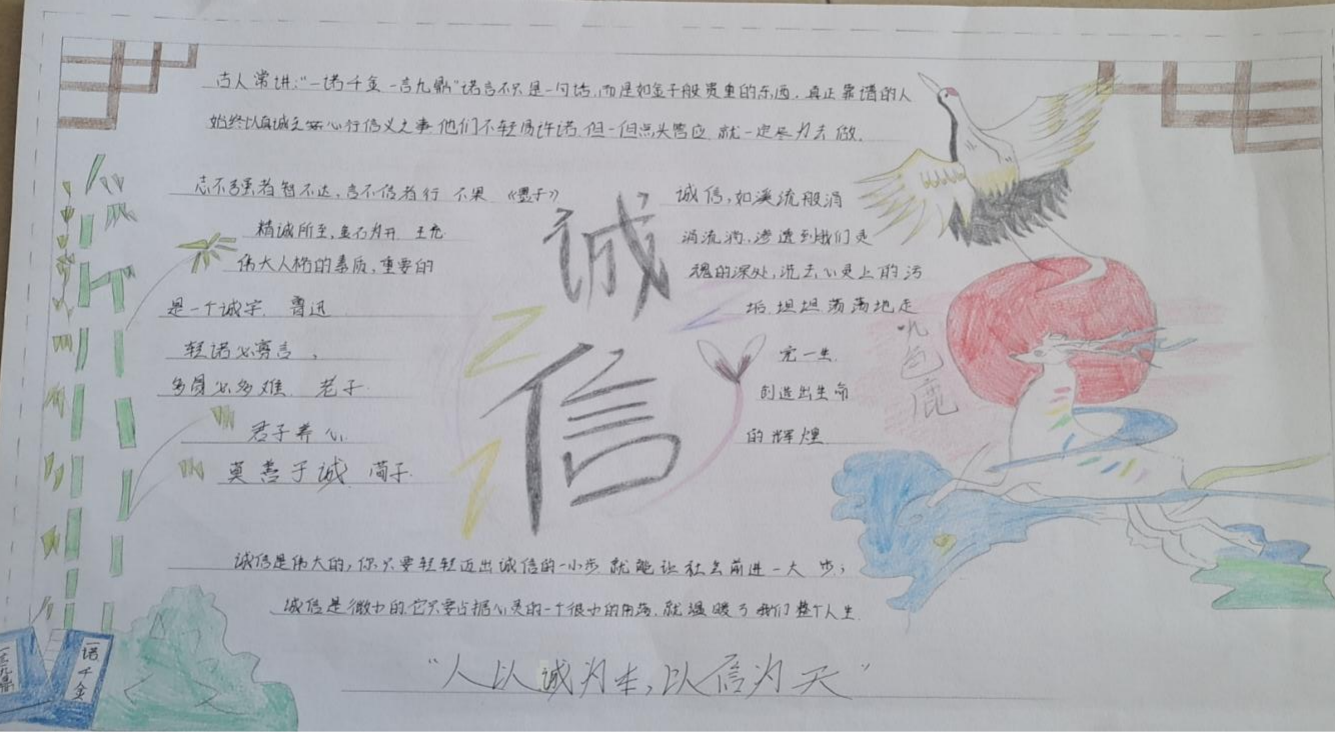 古人常讲:"一诺千金 一言九鼎"诺言不只是一句话,而是如金子般贵重的东西,真正靠谱的人
始终以真诚之心行信义之事他们不轻易许诺 但一但点头答应 就一定尽力去做.
志不强者智不达,言不信者行 不果 《墨子》
精诚所至,金石为开 王充
伟大人格的素质,重要的
是一个诚字. 鲁迅
轻诺必寡言 ,
多易必多难 老子
君子养心
莫善于诚 荀子.
诚
信
诚信,如溪流般涓
涓流淌,渗透到我们灵
魂的深处,洗去心灵上的污
垢 坦坦荡荡地走
完一生.
创造出生命
的辉煌.
九色鹿
诚信是伟大的,你只要轻轻迈出诚信的一小步 就能让社会前进一大 步;
诚信是微小的,它只要占据心灵的一个很小的角落,就温暖了我们整个人生.
"人以诚为本,以信为天"
一言九鼎
一诺千金